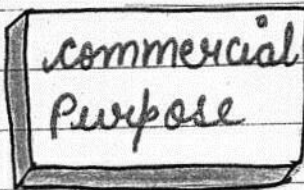 commercial
Purpose